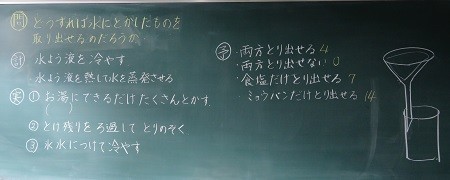 問 どうすれば水にとかしたものを
取り出せるのだろうか
計 水よう液を冷やす
水よう液を熱して水を蒸発させる
実 ① お湯にできるだけたくさんとかす
② とけ残りをろ過してとりのぞく
③ 氷水につけて冷やす
予 ・両方とり出せる 4
・両方とり出せない 0
・食塩だけとり出せる 7
・ミョウバンだけとり出せる 14